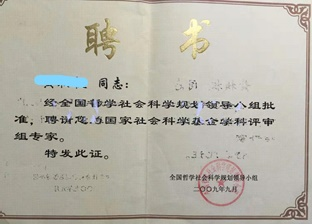 聘书
同志：
经全国哲学社会科学规划领导小组批
准，聘请您为国家社会科学基金学科评审
组专家。
特发此证。
全国哲学社会科学规划领导小组
二〇〇九年九月